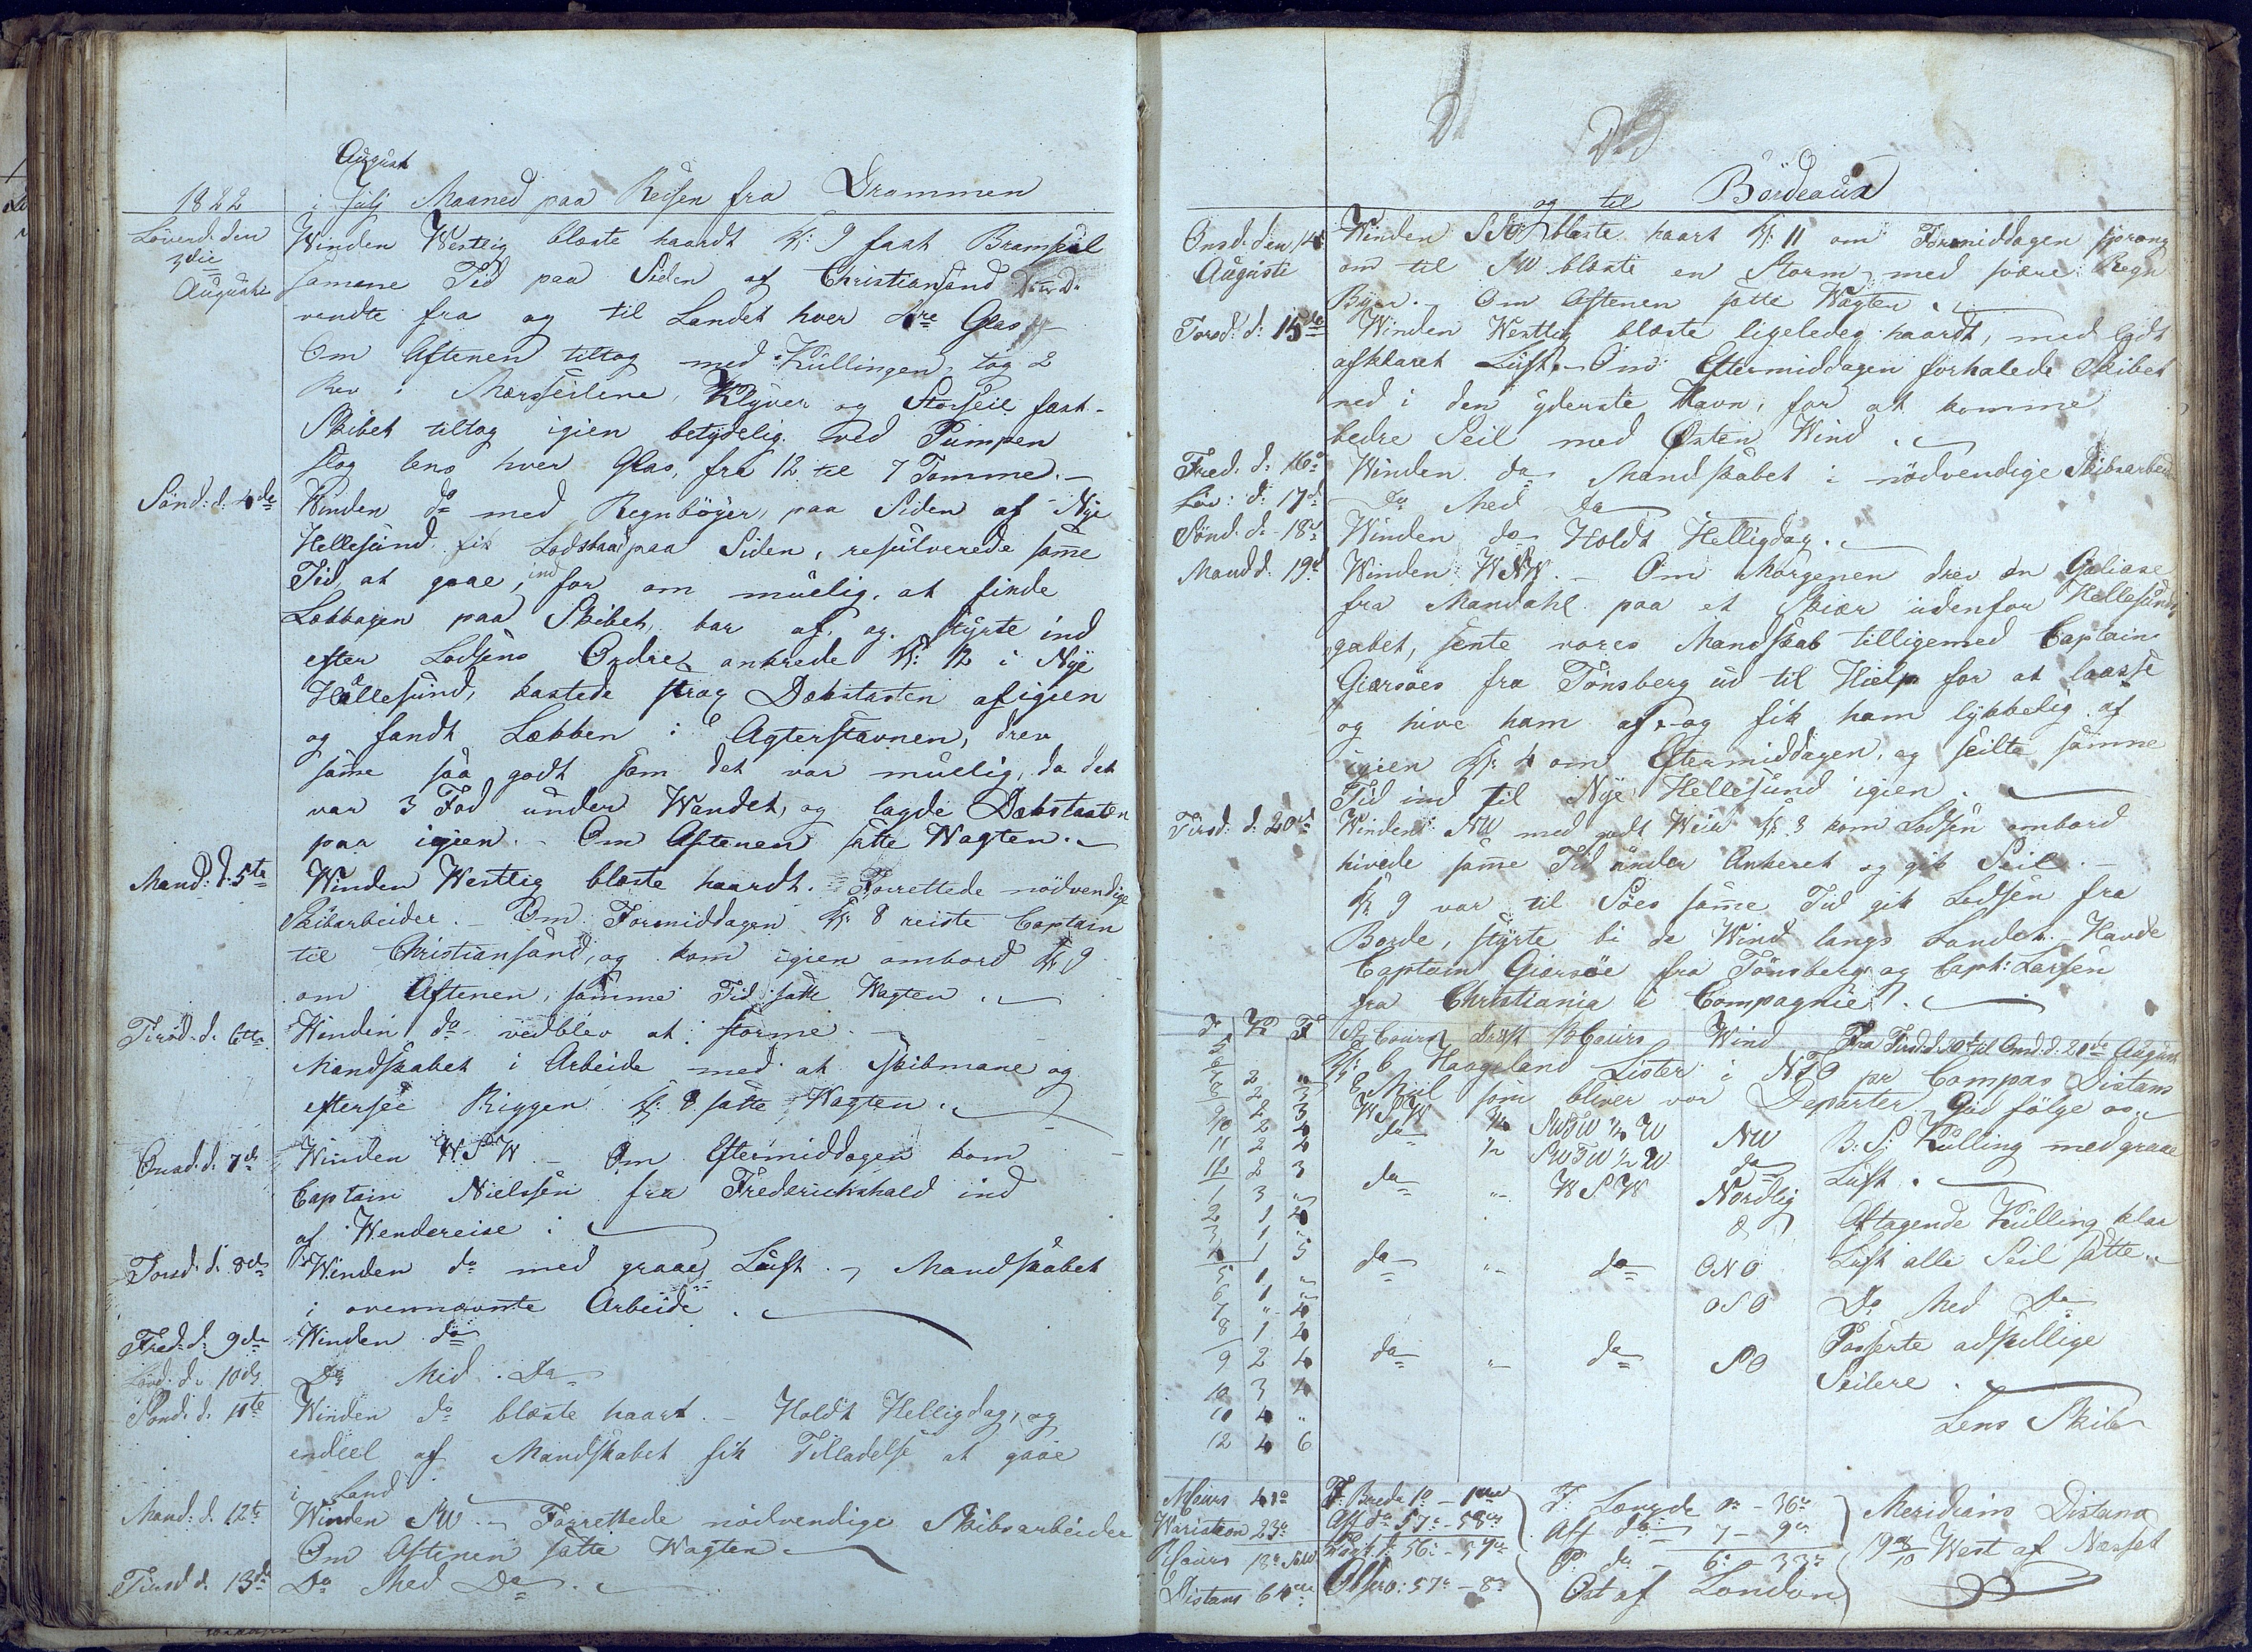 August
1822 i July Maaned paa Reisen fra Drammen
Löverd. den 3die Auguste Winden Westlig blæste haardt Kl: 9 fast Bramseil
samme Tid paa Siden af Christiansand
vendte fra og til Landet hver Glas
Om Aftenen tiltog med Kullingen, tog 2
Rev i Mærsseilene, Klyver og Storseil fast.
Skibet tiltog igien betydelig ved Pumpen
slog lens hver Glas, fra 12 til 7 Tomme.
Sönd: d. 4de Winden do med Regnböyer, paa Siden af Nye
Hellesund fik Lods paa Siden, resulverede same
Tid, at gaae ind for om muelig, at finde
Lækkagen paa Skibet, bar af, og styrte ind
efter Lodsens Ordre ankrede Kl: 12 i Nye
Hellesund, kastede strax Dækslasten af igien
og fandt Lækken i Agterstavnen, drev
same saa godt som det var muelig, da det
var 3 Fod under Wandet, og lagde Dækslasten
paa igien. Om Aftenen satte Wagten.
Mand: d. 5te Winden Westlig blæste haardt. Forrettede nödvendige
Skibarbeider. Om Formiddagen Kl: 8 reiste Captain
til Christiansand, og kom igien ombord Kl: 9
om Aftenen, samme Tid satte Wagten.
Tirsd. d. 6te Winden do vedblev at storme.
Mandskabet i Arbeide med at skibmane og
eftersee Riggen Kl: 8 satte Wagten.
Onsd. d. 7de Winden WSW Om Eftermiddagen kom
Captain Nielssen fra Frederichshald ind
af Wendereise
Torsd. d. 8de Winden do med graae Luft. Mandskabet
i ovennævnte Arbeide.
Fred. d. 9de Winden do
Löd. d. 10de Do Med Do
Sönd. d. 11te Winden do blæste haart. Holdt Helligdag, og
endeel af Mandskabet fik Tilladelse at gaae
i Land
Mand: d. 12te Winden SW. Forrettede nödvendige Skibsarbeider
Om Aftenen satte Wagten.
Tirsd. d. 13de Do Med Do
og til Bördeaux
Onsd. den 14 Auguste Winden blæste haart Kl: 11 om Formiddagen sprang
om til SW blæste en Storm med svære Regn
Byer. Om Aftenen satte Wagten.
Torsd: d: 15de Winden Westlig blæste ligeledeg haardt, med lidt
afklaret Luft. Om Eftermiddagen forhalede Skibet
ned i den yderste Havn, for at komme
bedre Seil med Østen Wind.
Fred. d: 16d Winden do Mandskabet i nödvendige Skibsarbeid
Löv: d: 17d Do Med Do
Sönd. d. 18d Winden do Holdt Helligdag.
Mand d. 19d Winden WNW. Om Morgenen drev en Galiase
fra Mandahl paa et Skiær udenfor Hellesunds
gabet, sente vores Mandskab tilligemed Captain
Giersöes fra Tönsberg ud til Hielp for at laasse
og hive ham af, og fik ham lykkelig af
igien Kl: 4 om Eftermiddagen, og seilte samme
Tid ind til Nye Hellesund igien.
Tirsd: d: 20de Winden NW med godt Weir Kl: 8 kom Lodsen ombord
hivede same Tid under Ankeret og gik Seil.
Kl: 9 var til Söes same Tid gik Lodsen fra
Borde, styrte bi de Wind langs Landet. Havde
Captain Giersöe fra Tönsberg og Capt: Larsen
fra Christiania i Compagnie.
T K F St Cours Drift B Cours Wind Fra Tirsd. d. 20de til Onsd. d. 21de August
Kl: 6 Haageland Lister i NTO pr Compas Distans
Miil som bliver vor Departer Gud fölge os.
5
6 2 "
7
8 2 3 WSW 1/4 SWTW 1/4 W NW B: S: Kulling med graae
9 2 3 do 1/2 SWTW 1/2 W do Luft.
10 2 4
11 2 2
12 2 3 do " WSW Nordlig
1 3 " Aftagende Kulling klar
2 1 2
3 1 "
4 1 5 do " do ONO Luft alle Seil satte
5 1 "
6 1 " OSO Do Med Do
7 " 4
8 1 4 Passerte adskillige
9 2 4 do " do SO Seilere.
10 3 4
10 4 " Lens Skib
12 4 6
Mcurs 41o F. Brede 1o T: Længde Meridians Distans
Wariation 23o Aff do 57o - 58m Aff do 7 - 9m 19 8/10 West af Næsset
Distans 64m Obsero: 57o - 8m P. do 6o - 33m
Ost af London